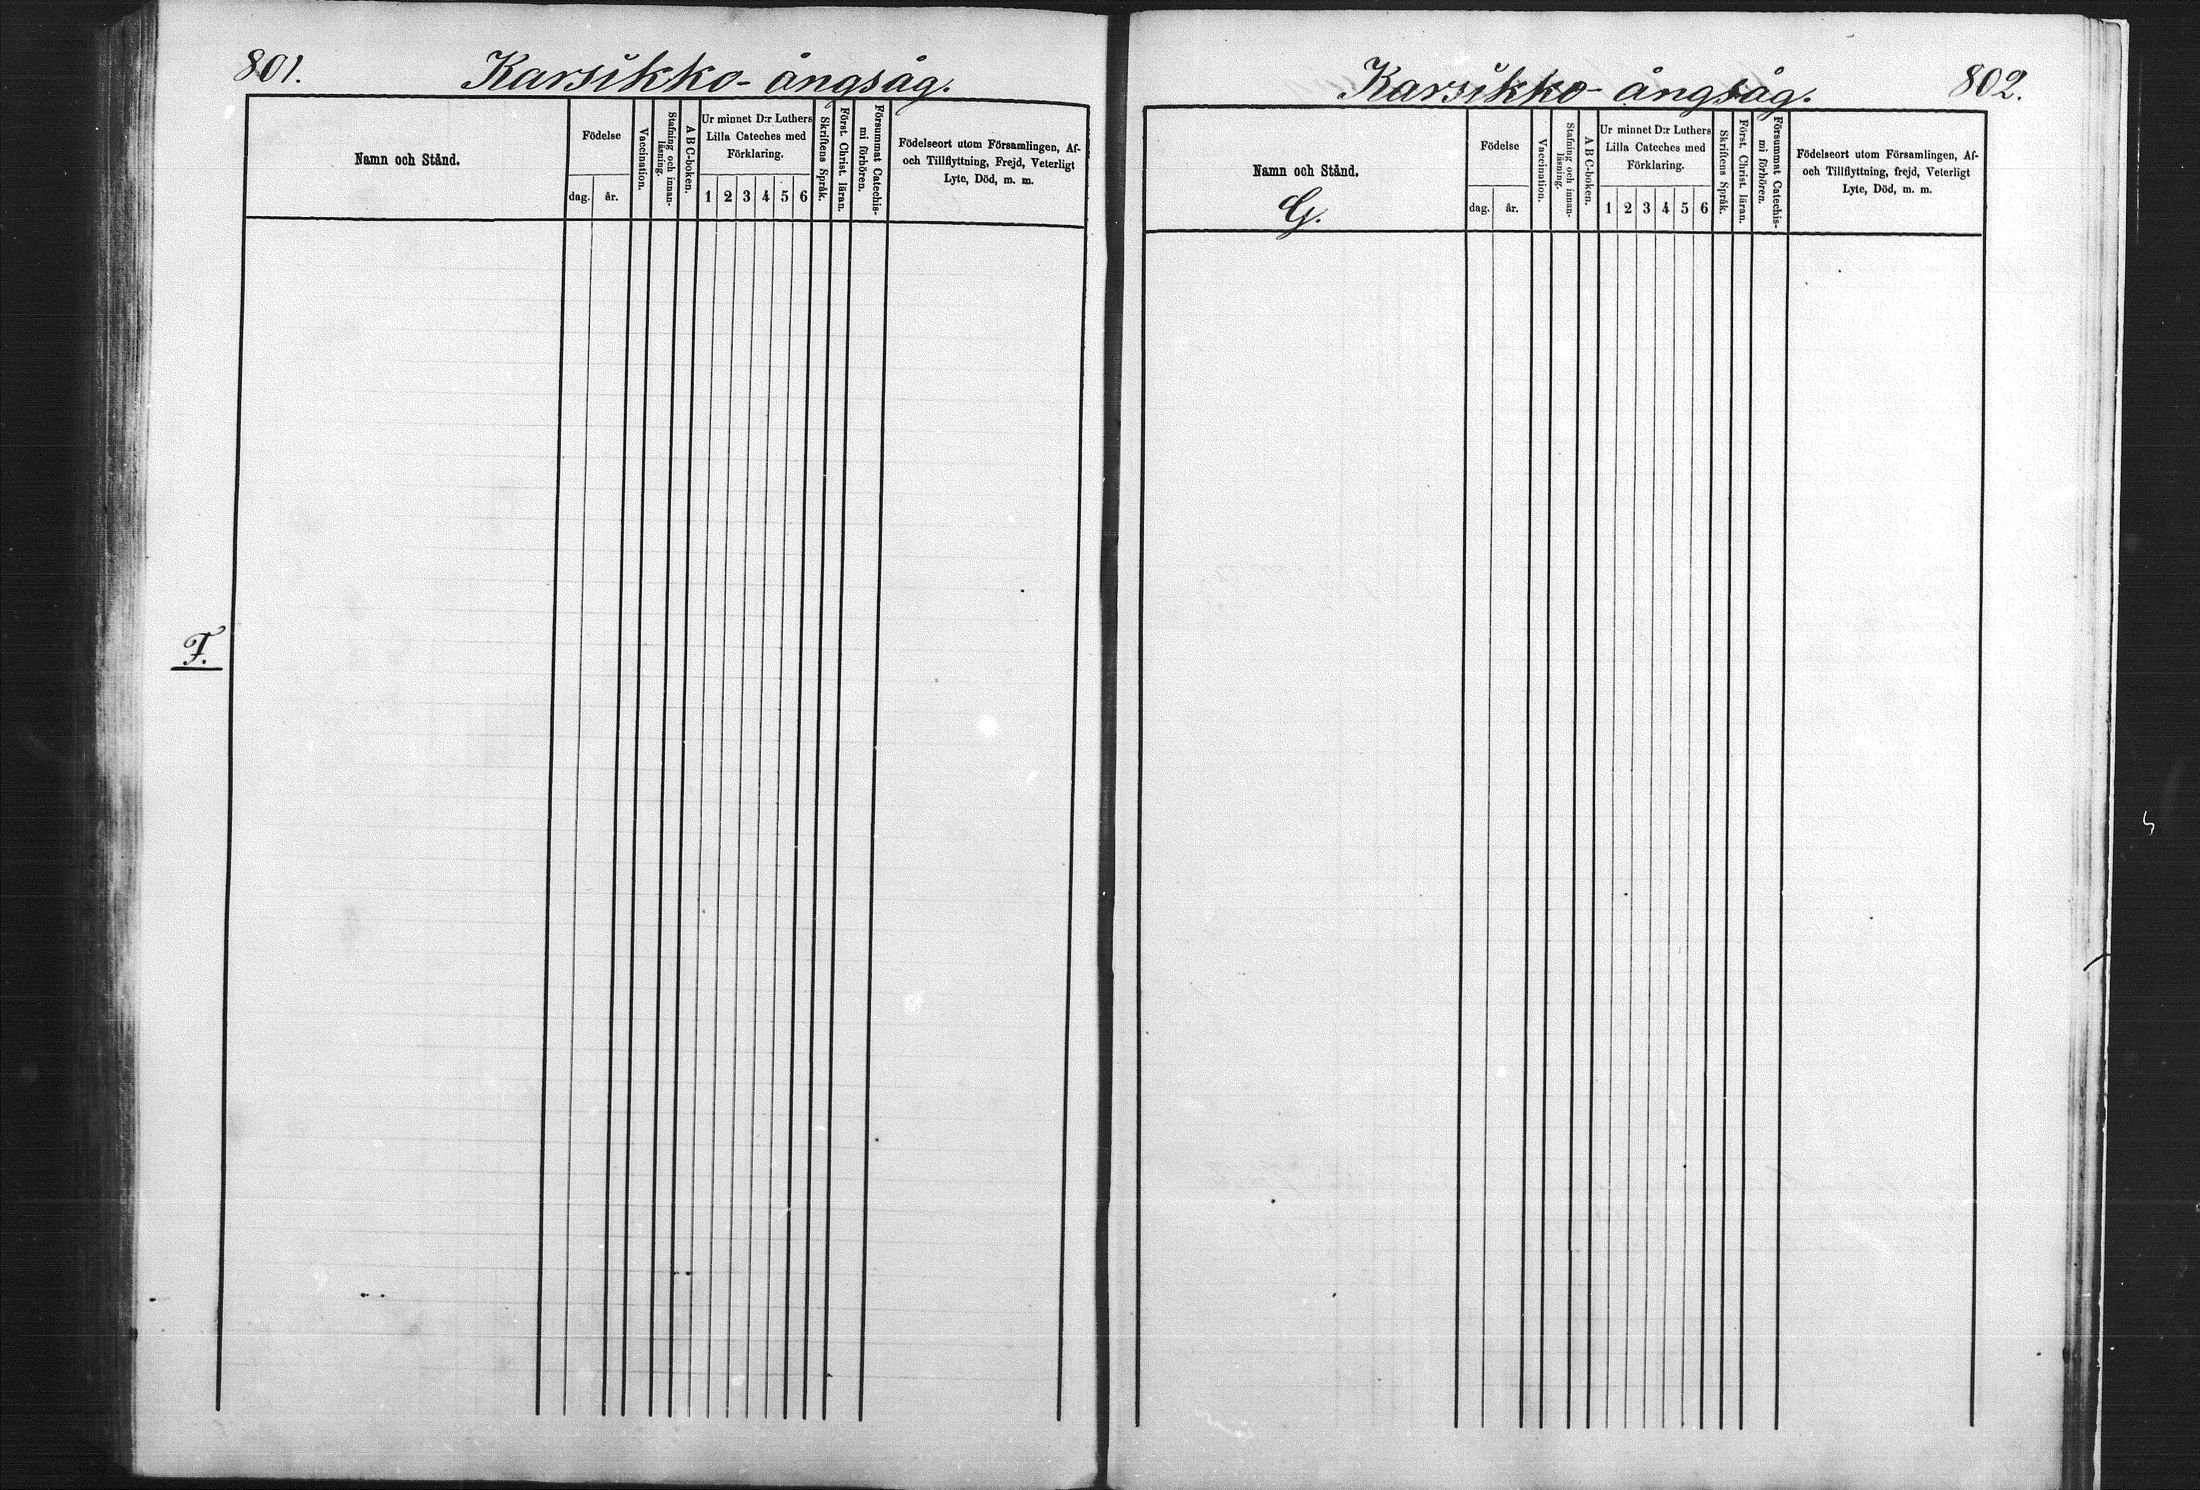 801.
Karsikko-ångsåg.
Namn och Stånd.
Födelse
dag.
år.
Vaccination.
Stafning och innan-
läsning.
A B C-boken.
Ur minnet D:r Luthers
Lilla Cateches med
Förklaring.
1 2 3 4 5 6
Skriftens Språk.
Först. Christ. läran.
Försummat Catechis-
mi förhören.
Födelseort utom Församlingen, Af-
och Tillflyttning, Frejd, Veterligt
Lyte, Död, m. m.
F.
Karsikko-ångsåg.
802.
Namn och Stånd.
G.
Födelse
dag.
år.
Vaccination.
Stafning och innan-
läsning.
A B C-boken.
Ur minnet D:r Luthers
Lilla Cateches med
Förklaring.
1 2 3 4 5 6
Skriftens Språk.
Först. Christ. läran.
Försummat Catechis-
mi förhören.
Födelseort utom Församlingen, Af-
och Tillflyttning, frejd, Veterligt
Lyte, Död, m. m.